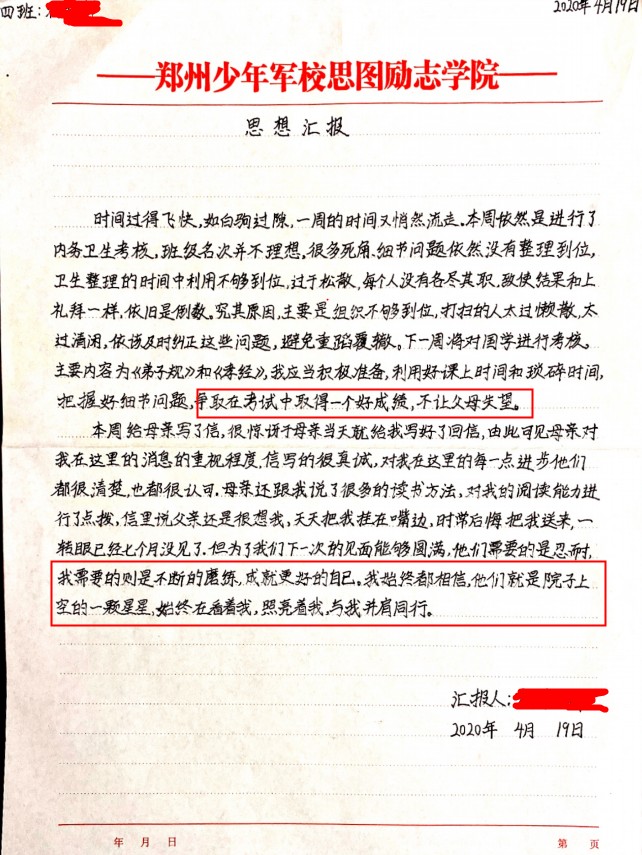 四班:
2020年4月19日
郑州少年军校思图励志学院
思想汇报
时间过得飞快,如白驹过隙,一周的时间又悄然流走。本周依然是进行了
内务卫生考核,班级名次并不理想。很多死角、细节问题依然没有整理到位,
卫生整理的时间中利用不够到位,过于松散,每个人没有各尽其职,致使结果和上
礼拜一样,依旧是倒数。究其原因,主要是组织不够到位,打扫的人太过懒散,太
过清闲,依该及时纠正这些问题,避免重蹈覆撤。下一周将对国学进行考核。
主要内容为《弟子规》和《孝经》,我应当积极准备,利用好课上时间和琐碎时间,
把握好细节问题,争取在考试中取得一个好成绩,不让父母失望。
本周给母亲写了信,很惊讶于母亲当天就给我写好了回信,由此可见母亲对
我在这里的消息的重视程度,信写的很真诚,对我在这里的每一点进步他们
都很清楚,也都很认可。母亲还跟我说了很多的读书方法,对我的阅读能力进
行了点拨,信里说父亲还是很想我,天天把我挂在嘴边,时常后悔把我送来,一
转眼已经七个月没见了。但为了我们下一次的见面能够圆满,他们需要的是忍耐,
我需要的则是不断的磨练,成就更好的自己。我始终都相信,他们就是院子上
空的一颗星星,始终在看着我,照亮着我,与我并肩同行。
汇报人:
2020年 4月 19日
年 月 日
第 页